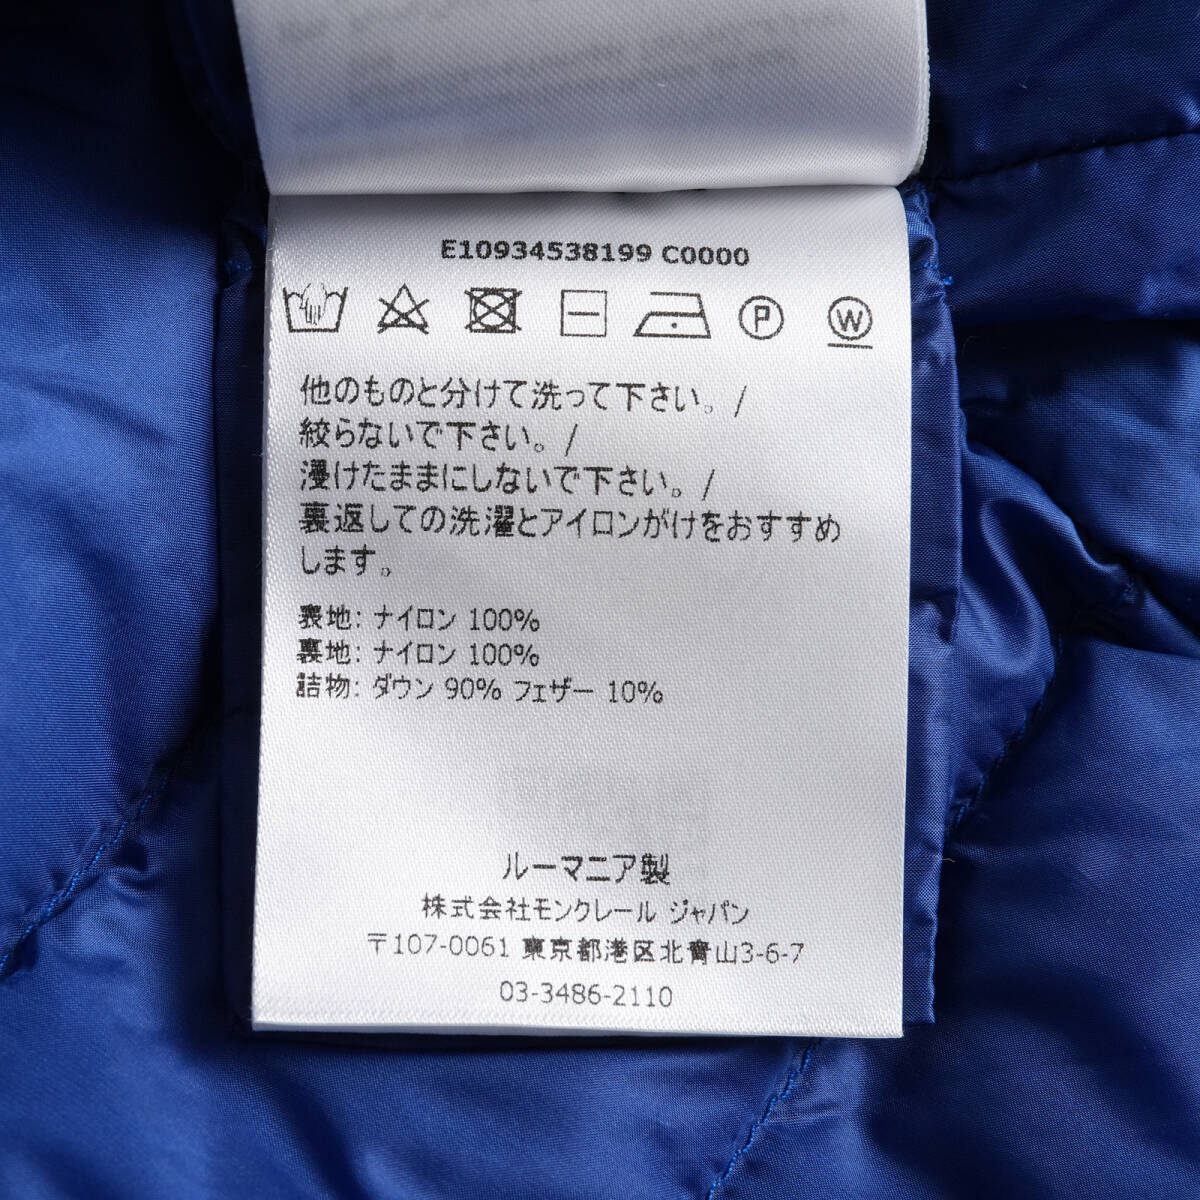 E10934538199 C0000
P
W
他のものと分けて洗って下さい。/
絞らないで下さい。/
浸けたままにしないで下さい。/
裏返しての洗濯とアイロンがけをおすすめ
します。
表地: ナイロン 100%
裏地: ナイロン 100%
詰物: ダウン 90% フェザー 10%
ルーマニア製
株式会社モンクレール ジャパン
〒107-0061 東京都港区北青山3-6-7
03-3486-2110